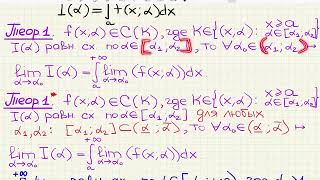 I(α)=∫ₐ f(x;α)dx
Теор 1 f(x,α)∈C(K), где K∈{(x,α): x⩾a α∈[α₁,α₂]
I(α) равн сх по α∈[α₁;α₂], то ∀α₀∈(α₁;α₂) ↦
lim I(α) = ∫ₐ^{+∞} lim (f(x,α))dx
α→α₀ α→α₀
Теор 1* f(x,α)∈C(K), где K∈{(x,α): x⩾a α∈[α₁;α₂]
I(α) равн. сх по α∈[α₁;α₂] для любых
α₁,α₂: [α₁;α₂]⊂(α̲;ᾱ), то ∀α₀∈(α̲;ᾱ) ↦
lim I(α) = ∫ₐ^{+∞} lim (f(x,α))dx
α→α₀ α→α₀